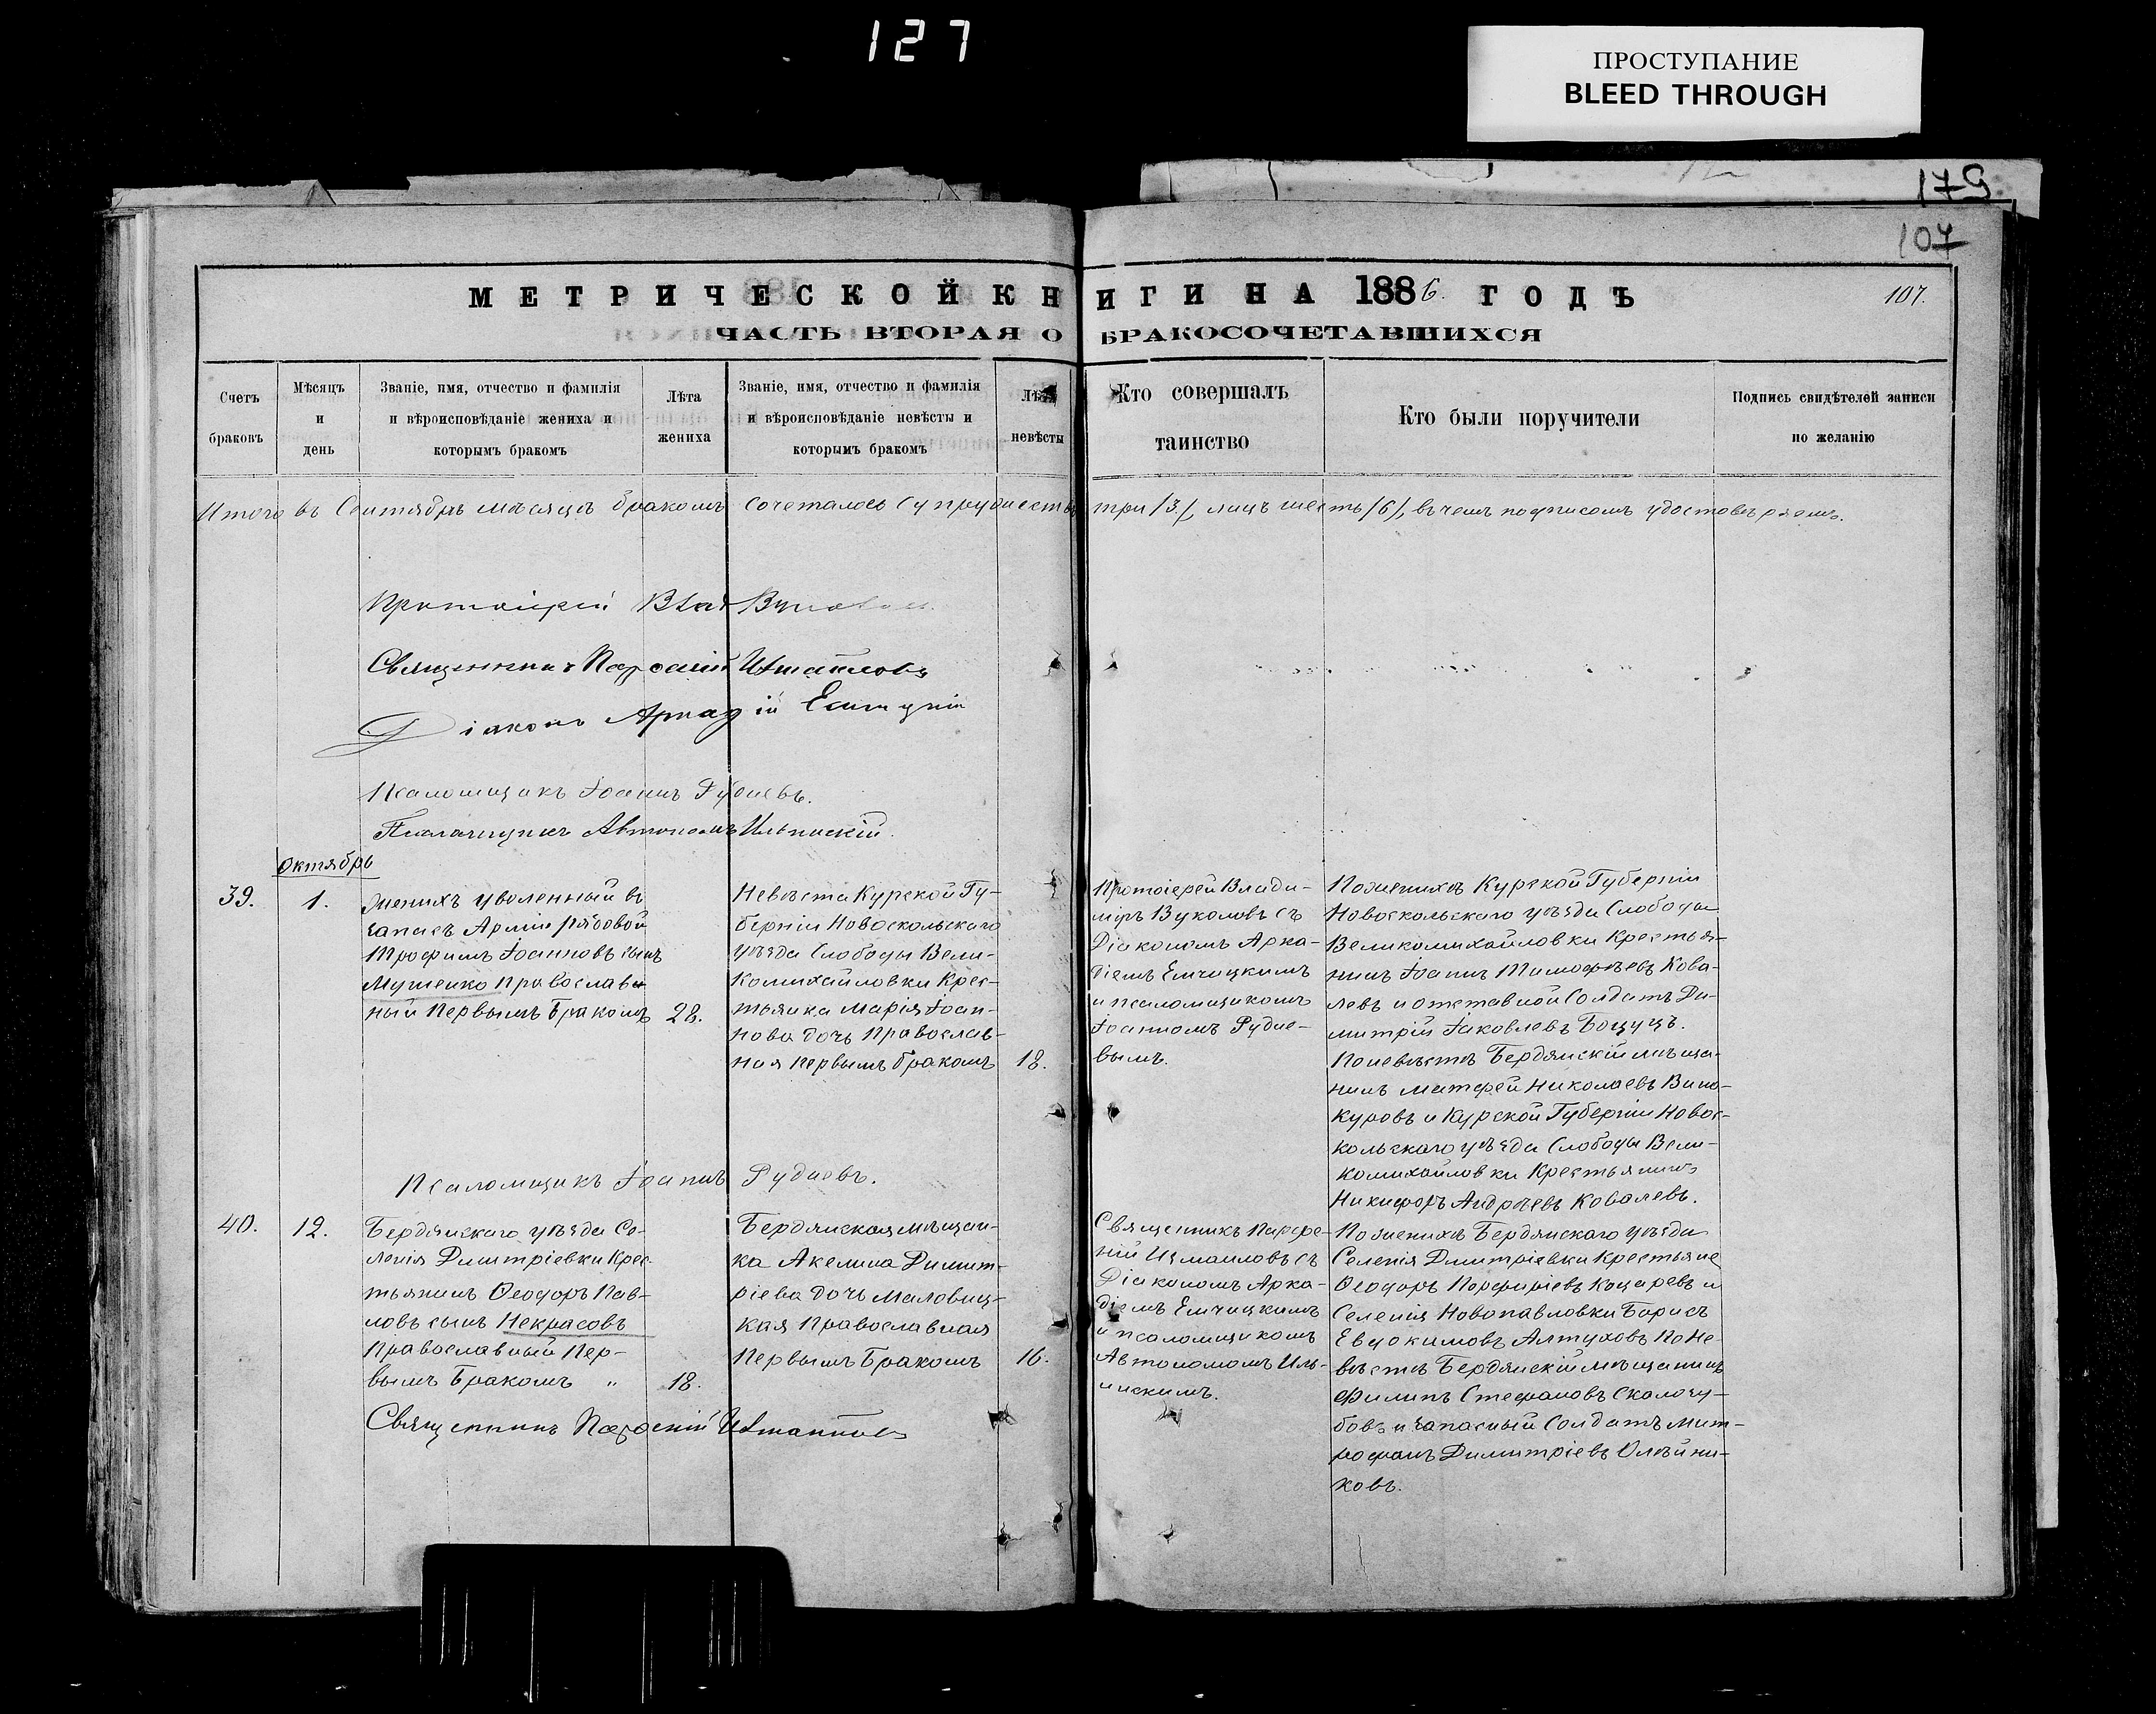 127
ПРОСТУПАНИЕ
BLEED THROUGH
179
107
МЕТРИЧЕСКОЙ КНИГИ НА 1886. ГОДЪ
107.
ЧАСТЬ ВТОРАЯ О БРАКОСОЧЕТАВШИХСЯ
Счетъ
браковъ
Мѣсяцъ
и
день
Званіе, имя, отчество и фамилія
и вѣроисповѣданіе жениха и
которымъ бракомъ
Лѣта
жениха
Званіе, имя, отчество и фамилія
и вѣроисповѣданіе невѣсты и
которымъ бракомъ
Лѣта
невѣсты
Кто совершалъ
таинство
Кто были поручители
Подпись свидѣтелей записи
по желанію
Итого въ Сентябрѣ мѣсяцѣ бракомъ сочеталось супружествъ три /3/, лицъ шесть /6/, въ чемъ подписомъ удостовѣряемъ.
Протоіерей Влад
Священникъ Парѳеній Измаиловъ
Діаконъ Аркадій Епчицкій
Псаломщикъ Іоаннъ Рудневъ.
Псаломщикъ Автономъ Ильинскій.
Октябрь
39.
1.
Женихъ уволенный въ
запасъ Арміи рядовой
Трофимъ Іоанновъ сынъ
Мушенко Православ
ный первымъ бракомъ
28.
Невѣста Курской Гу-
берніи Новоскольскаго
уѣзда Слободы Вели-
комихайловки Крес-
тьянка Марія Іоан-
нова дочь Православ-
ная первымъ бракомъ
18.
Протоіерей Влади-
міръ Вуколовъ съ
Діакономъ Арка-
діемъ Епчицкимъ
и псаломщикомъ
Іоанномъ Рудне-
вымъ.
По женихѣ Курской Губерніи
Новоскольскаго уѣзда Слободы
Великомихайловки Крестья-
нинъ Іоаннъ Тимофѣевъ Кова-
левъ и отставной Солдатъ Ди-
митрій Іаковлевъ Боцуцъ.
По невѣстѣ Бердянскій мѣща-
нинъ Матфей Николаевъ Вино-
куровъ и Курской Губерніи Новос-
кольскаго уѣзда Слободы Вели-
комихайловки Крестьянинъ
Никифоръ Андрѣевъ Ковалевъ.
Псаломщикъ Іоаннъ Рудневъ.
40.
12.
Бердянскаго уѣзда Се-
ленія Димитріевки Крес-
тьянинъ Ѳеодоръ Пав-
ловъ сынъ Некрасовъ
Православный Пер-
вымъ Бракомъ "
18.
Бердянская мѣщан-
ка Акелина Димит-
ріева дочь Маловиц-
кая Православная
Первымъ Бракомъ
16.
Священникъ Парѳе-
ній Измаиловъ съ
Діакономъ Арка-
діемъ Епчицкимъ
и псаломщикомъ
Автономомъ Иль-
инскимъ.
По женихѣ Бердянскаго уѣзда
Селенія Димитріевки Крестьяне
Ѳеодоръ Порфиріевъ Коцаревъ и
Селенія Новопавловки Борисъ
Евдокимовъ Алтуховъ По Не-
вѣстѣ Бердянскій мѣщанинъ
Филипъ Стефановъ Скалозу-
бовъ и запасный Солдатъ Мит-
рофанъ Димитріевъ Олѣйни-
ковъ.
Священникъ Парѳеній Измаиловъ